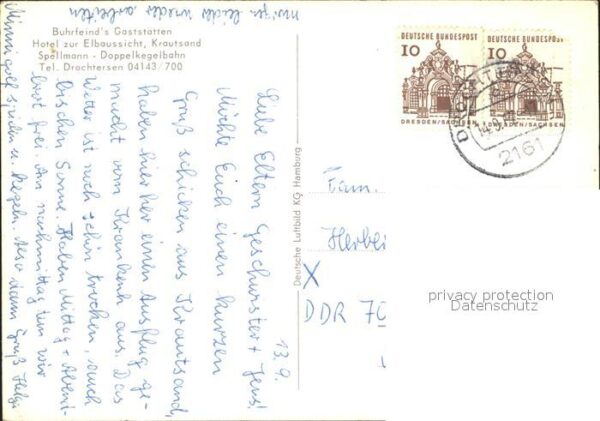 Buhrfeind's Gaststätten
Hotel zur Elbaussicht, Krautsand
Spellmann - Doppelkegelbahn
Tel. Drochtersen 04143/700
13.9.
Liebe Eltern Geschwister + Jens!
Möchte Euch einen kurzen
Gruß schicken aus Krautsand,
haben hier her einen Ausflug ge-
macht vom Krankenh. aus. Das
Wetter ist noch schön trocken, auch
bischen Sonne. Haben Mittag + Abend-
brot frei. Am nachmittag tun wir
Minni golf spielen u. Kegeln. Also dann Gruß Helga
morgen leider wieder arbeiten
Deutsche Luftbild KG, Hamburg
DEUTSCHE BUNDESPOST
10
DRESDEN/SACHSEN
DEUTSCHE BUNDESPOST
10
DRESDEN/SACHSEN
14.9.
2161
Fam.
Herber
X
DDR 70
privacy protection
Datenschutz